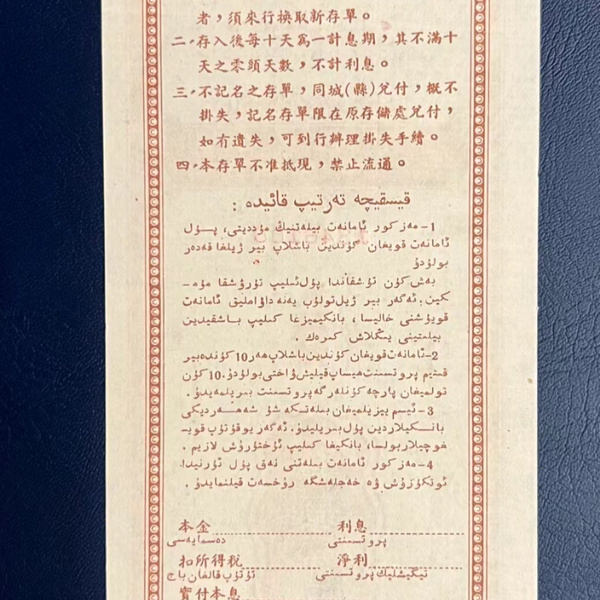 者，須來行換取新存單。
二．存入後每十天爲一計息期，其不滿十
天之零頭天數，不計利息。
三．不記名之存單，同城(縣)兌付，概不
掛失，記名存單限在原存儲處兌付，
如有遺失，可到行辦理掛失手續。
四．本存單不准抵現，禁止流通。
قىسقىچە تەرتىپ قائىدە :
1- مەزكور ئامانەت بىلەتنىڭ مۇددىتى، پۇل
ئامانەت قويغان كۈندىن باشلاپ بىر ژىلغا قەدەر
بولۇدۇ
بەش كۈن ئۇشقاندا پۇل ئىلىپ تۇرۇشقا مۇم-
كىن. ئەگەر بىر ژىل تولۇپ يەنە داۋاملىق ئامانەت
قويۇشنى خالىسا، بانكىمىزغا كىلىپ باشقىدىن
بىلىتىنى يىڭىلاش كىرەك.
2- ئامانەت قويغان كۈندىن باشلاپ ھەر 10 كۈندە بىر
قىتىم پروتسىنت ھىساپ قىلىش ۋاختى بولۇدۇ. 10 كۈن
تولمىغان پارچە كۈنلەرگە پروتسىنت بىرىلمەيدۇ.
3- ئىسىم يىزىلمىغان بىلەتكە شۇ شەھەردىكى
بانكىلاردىن پۇل بىرىلىدۇ. ئەگەر يوقۇتۇپ قوي-
غۇچىلار بولسا، بانكىغا كىلىپ ئۇختۇرۇش لازىم.
4- مەزكور ئامانەت بىلەتنى نەق پۇل ئورنىدا
ئوتكۇزۇش ۋە خەجلەشكە رۇخسەت قىلىنمايدۇ.
本金 利息
دەسمايەسى پروتسىنتى
扣所得税 淨利
تۇتۇپ قالغان باج تىگىشلىك پروتسىنتى
實付本息